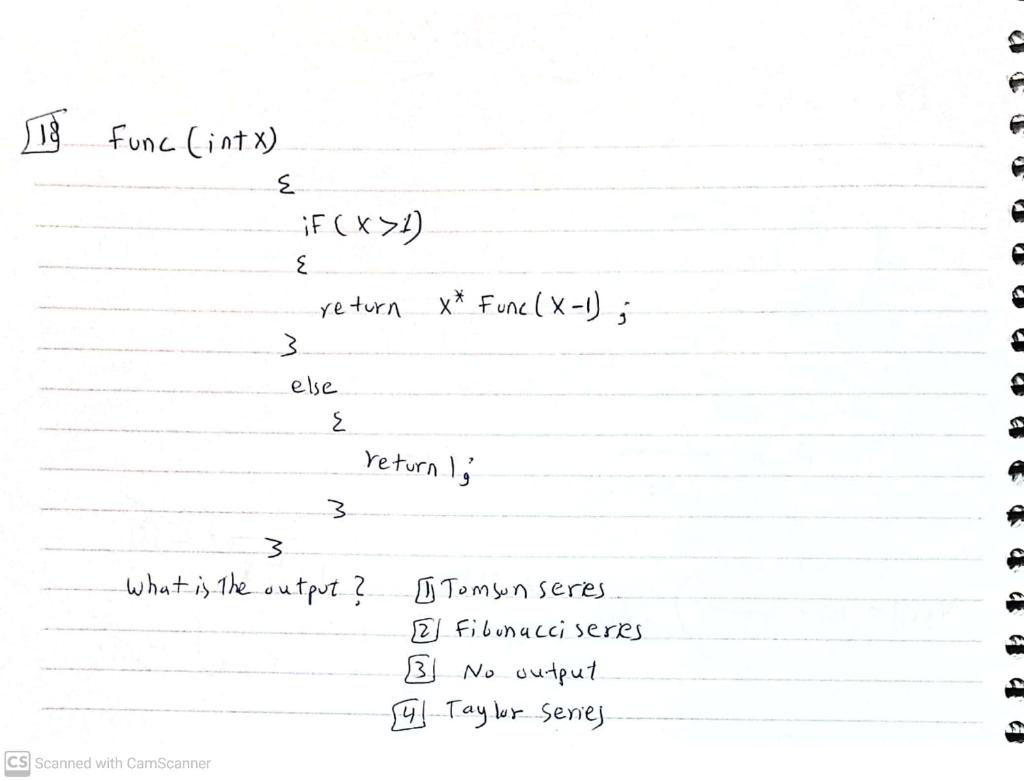 18 Func (int x)
{
if (x > 1)
{
return x * Func (x - 1) ;
}
else
{
return 1 ;
}
}
What is the output ? 1 Tomson series
2 Fibonacci series
3 No output
4 Taylor Series
CS Scanned with CamScanner